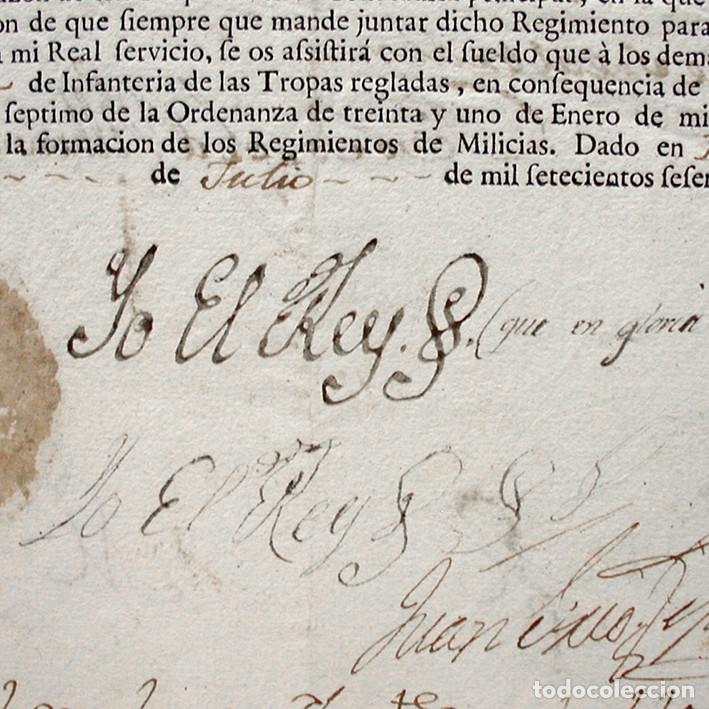 on de que ſiempre que mande juntar dicho Regimiento para
mi Real ſervicio, ſe os aſsiſtirá con el ſueldo que à los dema
de Infanteria de las Tropas regladas, en conſequencia de
ſeptimo de la Ordenanza de treinta y uno de Enero de mi
la formacion de los Regimientos de Milicias. Dado en
de Julio de mil ſetecientos ſeſen
Yo El Rey. (que en gloria
Yo El Rey
Juan
todocoleccion.net